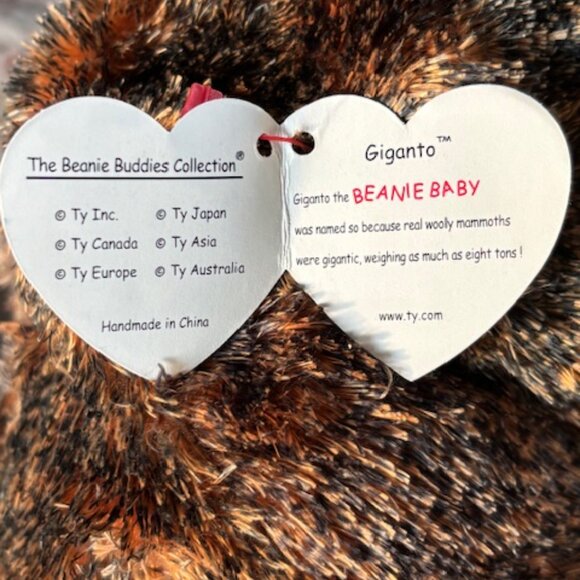 The Beanie Buddies Collection®
© Ty Inc. © Ty Japan
© Ty Canada © Ty Asia
© Ty Europe © Ty Australia
Handmade in China
Giganto™
Giganto the BEANIE BABY
was named so because real woolly mammoths
were gigantic, weighing as much as eight tons!
www.ty.com